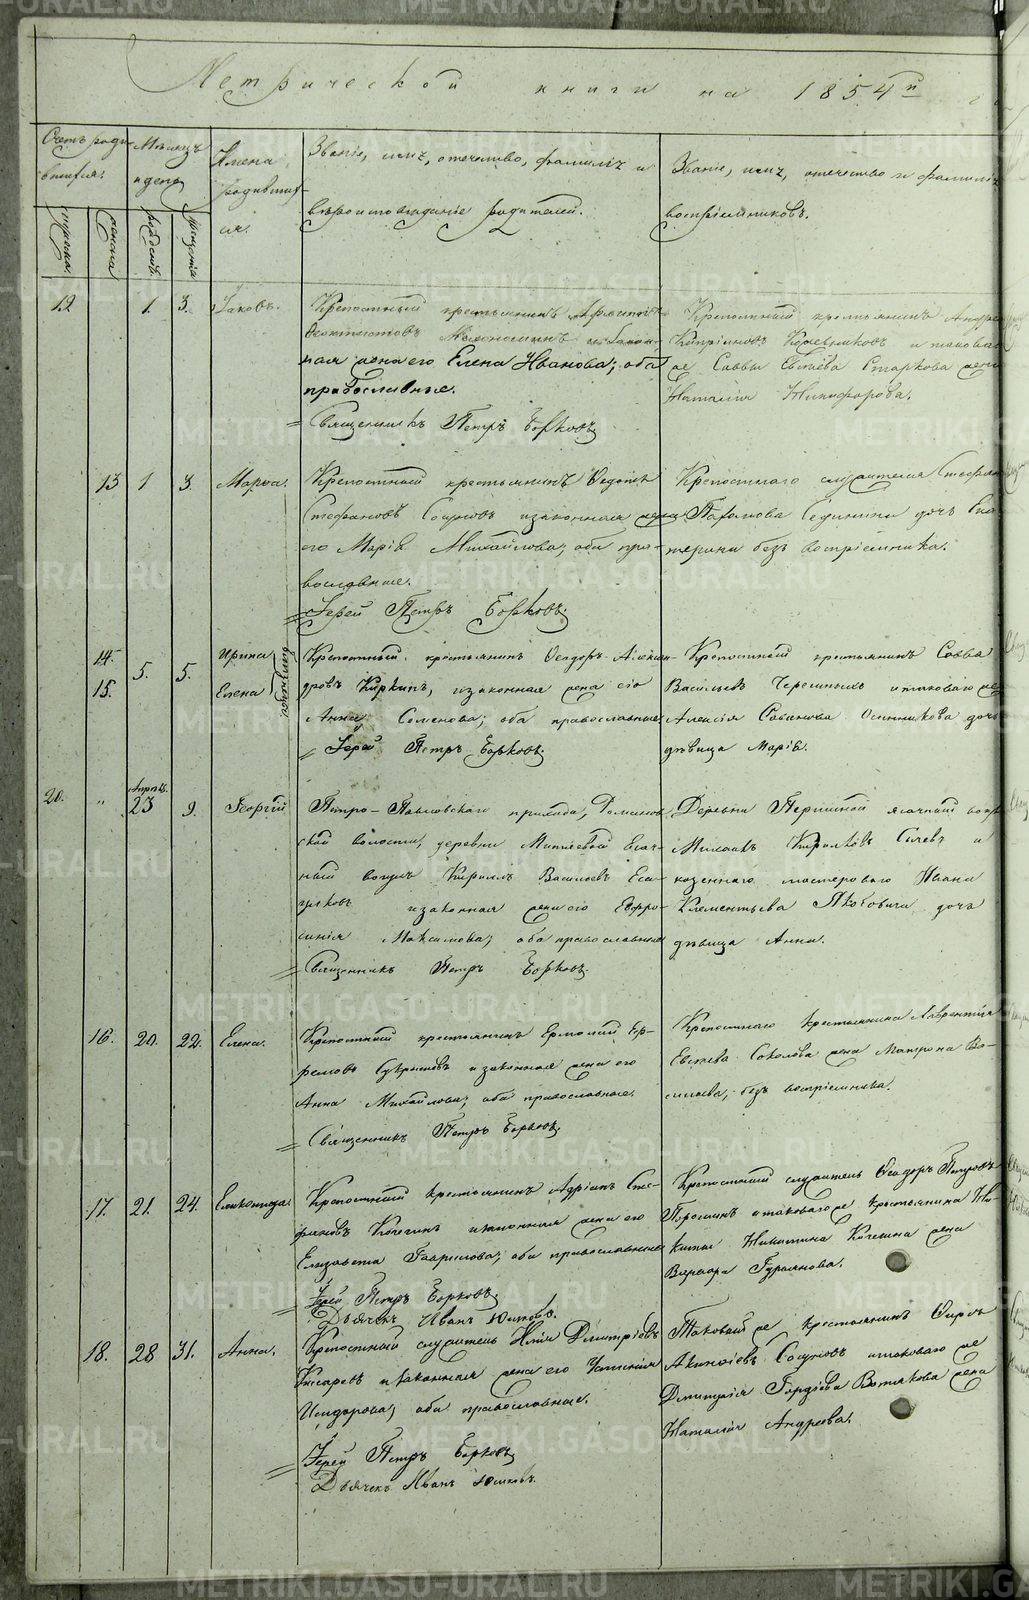 Метрической книги на 1854й
Счетъ роди-
вшихся.
Мѣсяцъ
и день
Имена
родивших-
ся.
Званіе, имя, отечество, фамилія и
вѣроисповѣданіе родителей.
Званіе, имя, отечество и фамилія
воспріемниковъ.
мужска
женска
рожденія
крещенія
12 1. 3. Іаковъ.
Крепостный крестьянинъ
Феоктистовъ и закон-
ная жена его Елена Иванова; оба
православные.
Священникъ Петръ Борковъ
Крепостный крестьянинъ Андрей
Кипріяновъ Кожевниковъ и таковаго
же Саввы Старкова жена
Наталія Никифорова.
13 1 3. Марѳа.
Крепостный крестьянинъ
Стефановъ Сосуновъ и законная жена
его Марія Михайлова, оба пра-
вославные.
Іерей Петръ Борковъ.
Крепостнаго служителя Стефана
дочь Ека-
терина безъ воспріемника.
14. 15. 5. 5. Ирина Елена близнецы
Крепостный крестьянинъ Ѳеодоръ Алексан-
дровъ Киркинъ, и законная жена его
Анна Семенова; оба православные
Іерей Петръ Борковъ.
Крепостный крестьянинъ Савва
Васильевъ Черемныхъ и таковаго же
Алексія Савинова Осинникова дочь
дѣвица Марія.
20. " Апрѣль 23 9. Георгій
Петро-Павловскаго прихода,
ской волости, деревни Митяевой Ясач-
ный вогулъ Кириллъ Васильевъ
и законная жена его Евфро-
синія Максимова; оба православные
Священникъ Петръ Борковъ.
Деревни Першиной ясачный вогулъ
Михаилъ Кириловъ и
казеннаго мастероваго Ивана
Клементьева Якубовича дочь
дѣвица Анна.
16. 20. 22. Елена.
Крепостный крестьянинъ Ермолай Еф-
ремовъ и законная жена его
Анна Михайлова; оба православные.
Священникъ Петръ Борковъ.
Крепостнаго крестьянина Лаврентія
Евсеева Соколова жена Матрона Ва-
сильева, безъ воспріемника.
17. 21. 24. Еликонида.
Крепостный крестьянинъ Адріанъ Сте-
фановъ Кокшинъ и законная жена его
Елизавета Гаврилова; оба православные
Іерей Петръ Борковъ.
Дьячекъ Иванъ Юшковъ.
Крепостный служитель Ѳеодоръ Петровъ
Порошинъ и таковаго же крестьянина Ни-
киты Никитина Кокшина жена
Варвара Гурьянова.
18. 28 31. Анна.
Крепостный служитель Илія Дмитріевъ
Писаревъ и законная жена его Устинія
Исидорова; оба православные.
Іерей Петръ Борковъ
Дьячекъ Иванъ Юшковъ.
Таковый же крестьянинъ
Акинфіевъ Сосуновъ и таковаго же
Дмитрія Гордѣева Вотякова жена
Наталія Андреева.
METRIKI.GASO-URAL.RU